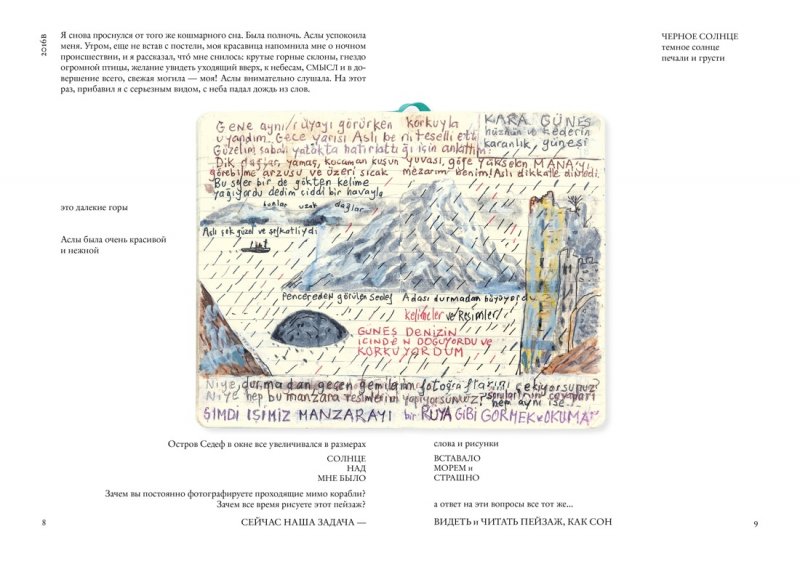 2016В
Я снова проснулся от того же кошмарного сна. Была полночь. Аслы успокоила
меня. Утром, еще не встав с постели, моя красавица напомнила мне о ночном
происшествии, и я рассказал, что́ мне снилось: крутые горные склоны, гнездо
огромной птицы, желание увидеть уходящий вверх, к небесам, СМЫСЛ и в до-
вершение всего, свежая могила — моя! Аслы внимательно слушала. На этот
раз, прибавил я с серьезным видом, с неба падал дождь из слов.
ЧЕРНОЕ СОЛНЦЕ
темное солнце
печали и грусти
Gene aynı rüyayı görürken korkuyla
uyandım. Gece yarısı Aslı beni teselli etti
Güzelim sabah yatakta hatırlattığı için anlattım
Dik dağlar, yamaç, kocaman kuşun yuvası, göğe yükselen MANA'YI
görebilme arzusu ve üzeri sıcak mezarım benim! Aslı dikkatle dinledi.
Bu sefer bir de gökten kelime
yağıyordu dedim ciddi bir havayla
KARA GÜNEŞ
hüznün ve kederin
karanlık, güneşi
bunlar uzak dağlar
Aslı çok güzel ve şefkatliydi
Pencereden görülen Sedef Adası durmadan büyüyordu
kelimeler ve Resimler
GÜNEŞ DENİZİN
İÇİNDEN DOĞUYORDU VE
KORKUYORDUM
Niye durmadan geçen gemilerin fotoğraflarını çekiyorsunuz?
Niye hep bu manzara resimlerini yapıyorsunuz? sorularının cevapları
hep aynı ise
ŞİMDİ İŞİMİZ MANZARAYI bir RÜYA GİBİ GÖRMEK ve OKUMAK
это далекие горы
Аслы была очень красивой
и нежной
Остров Седеф в окне все увеличивался в размерах
слова и рисунки
СОЛНЦЕ
НАД
МНЕ БЫЛО
ВСТАВАЛО
МОРЕМ и
СТРАШНО
Зачем вы постоянно фотографируете проходящие мимо корабли?
Зачем все время рисуете этот пейзаж?
а ответ на эти вопросы все тот же...
СЕЙЧАС НАША ЗАДАЧА —
ВИДЕТЬ и ЧИТАТЬ ПЕЙЗАЖ, КАК СОН
8
9